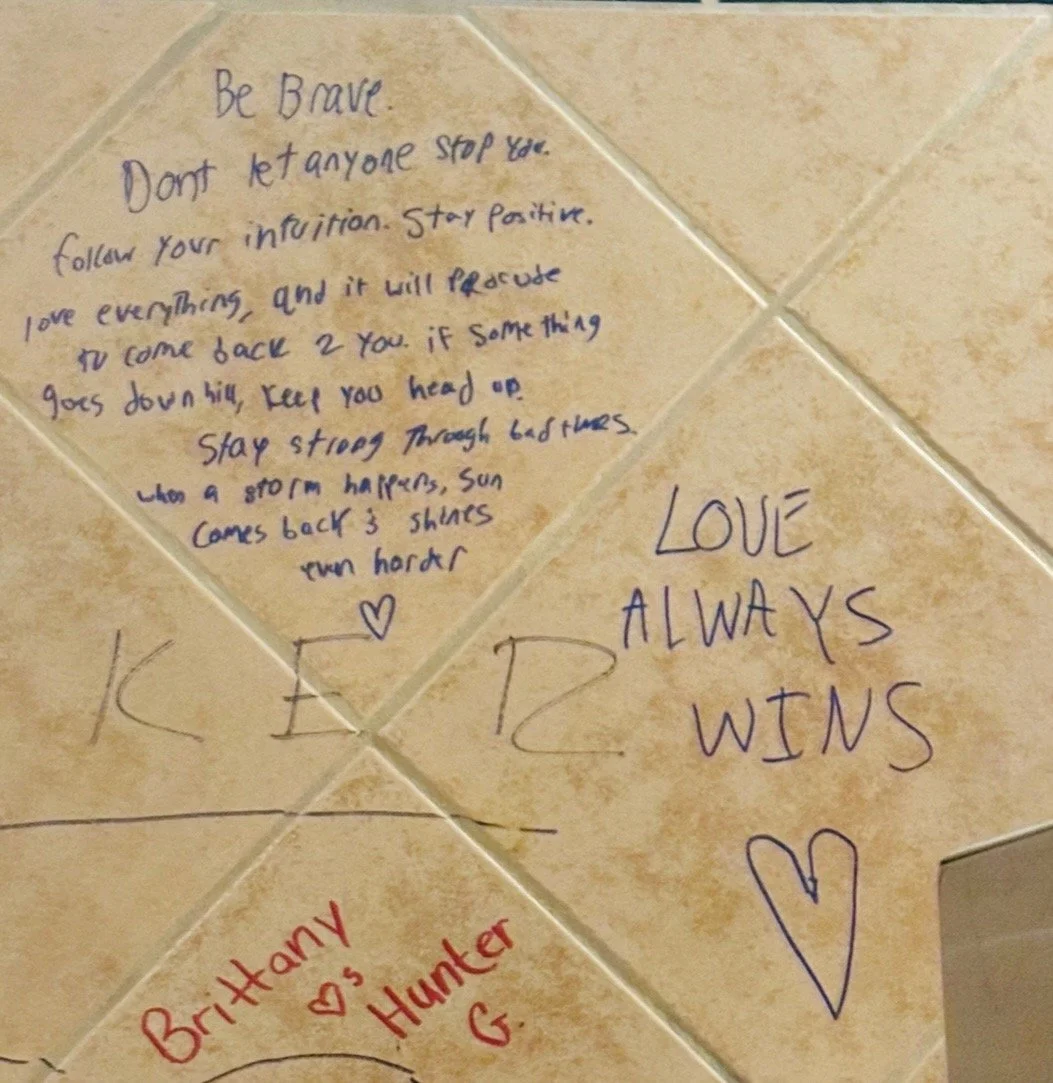 Be Brave.
Dont let anyone stop you.
follow your intuition. Stay Positive.
love everything, and it will
to come back 2 you. if something
goes down hill, keep you head up.
Stay strong through bad times.
when a storm happens, sun
comes back & shines
even harder
♡
K E R
LOVE
ALWAYS
WINS
♡
Brittany
♡s Hunter
G.